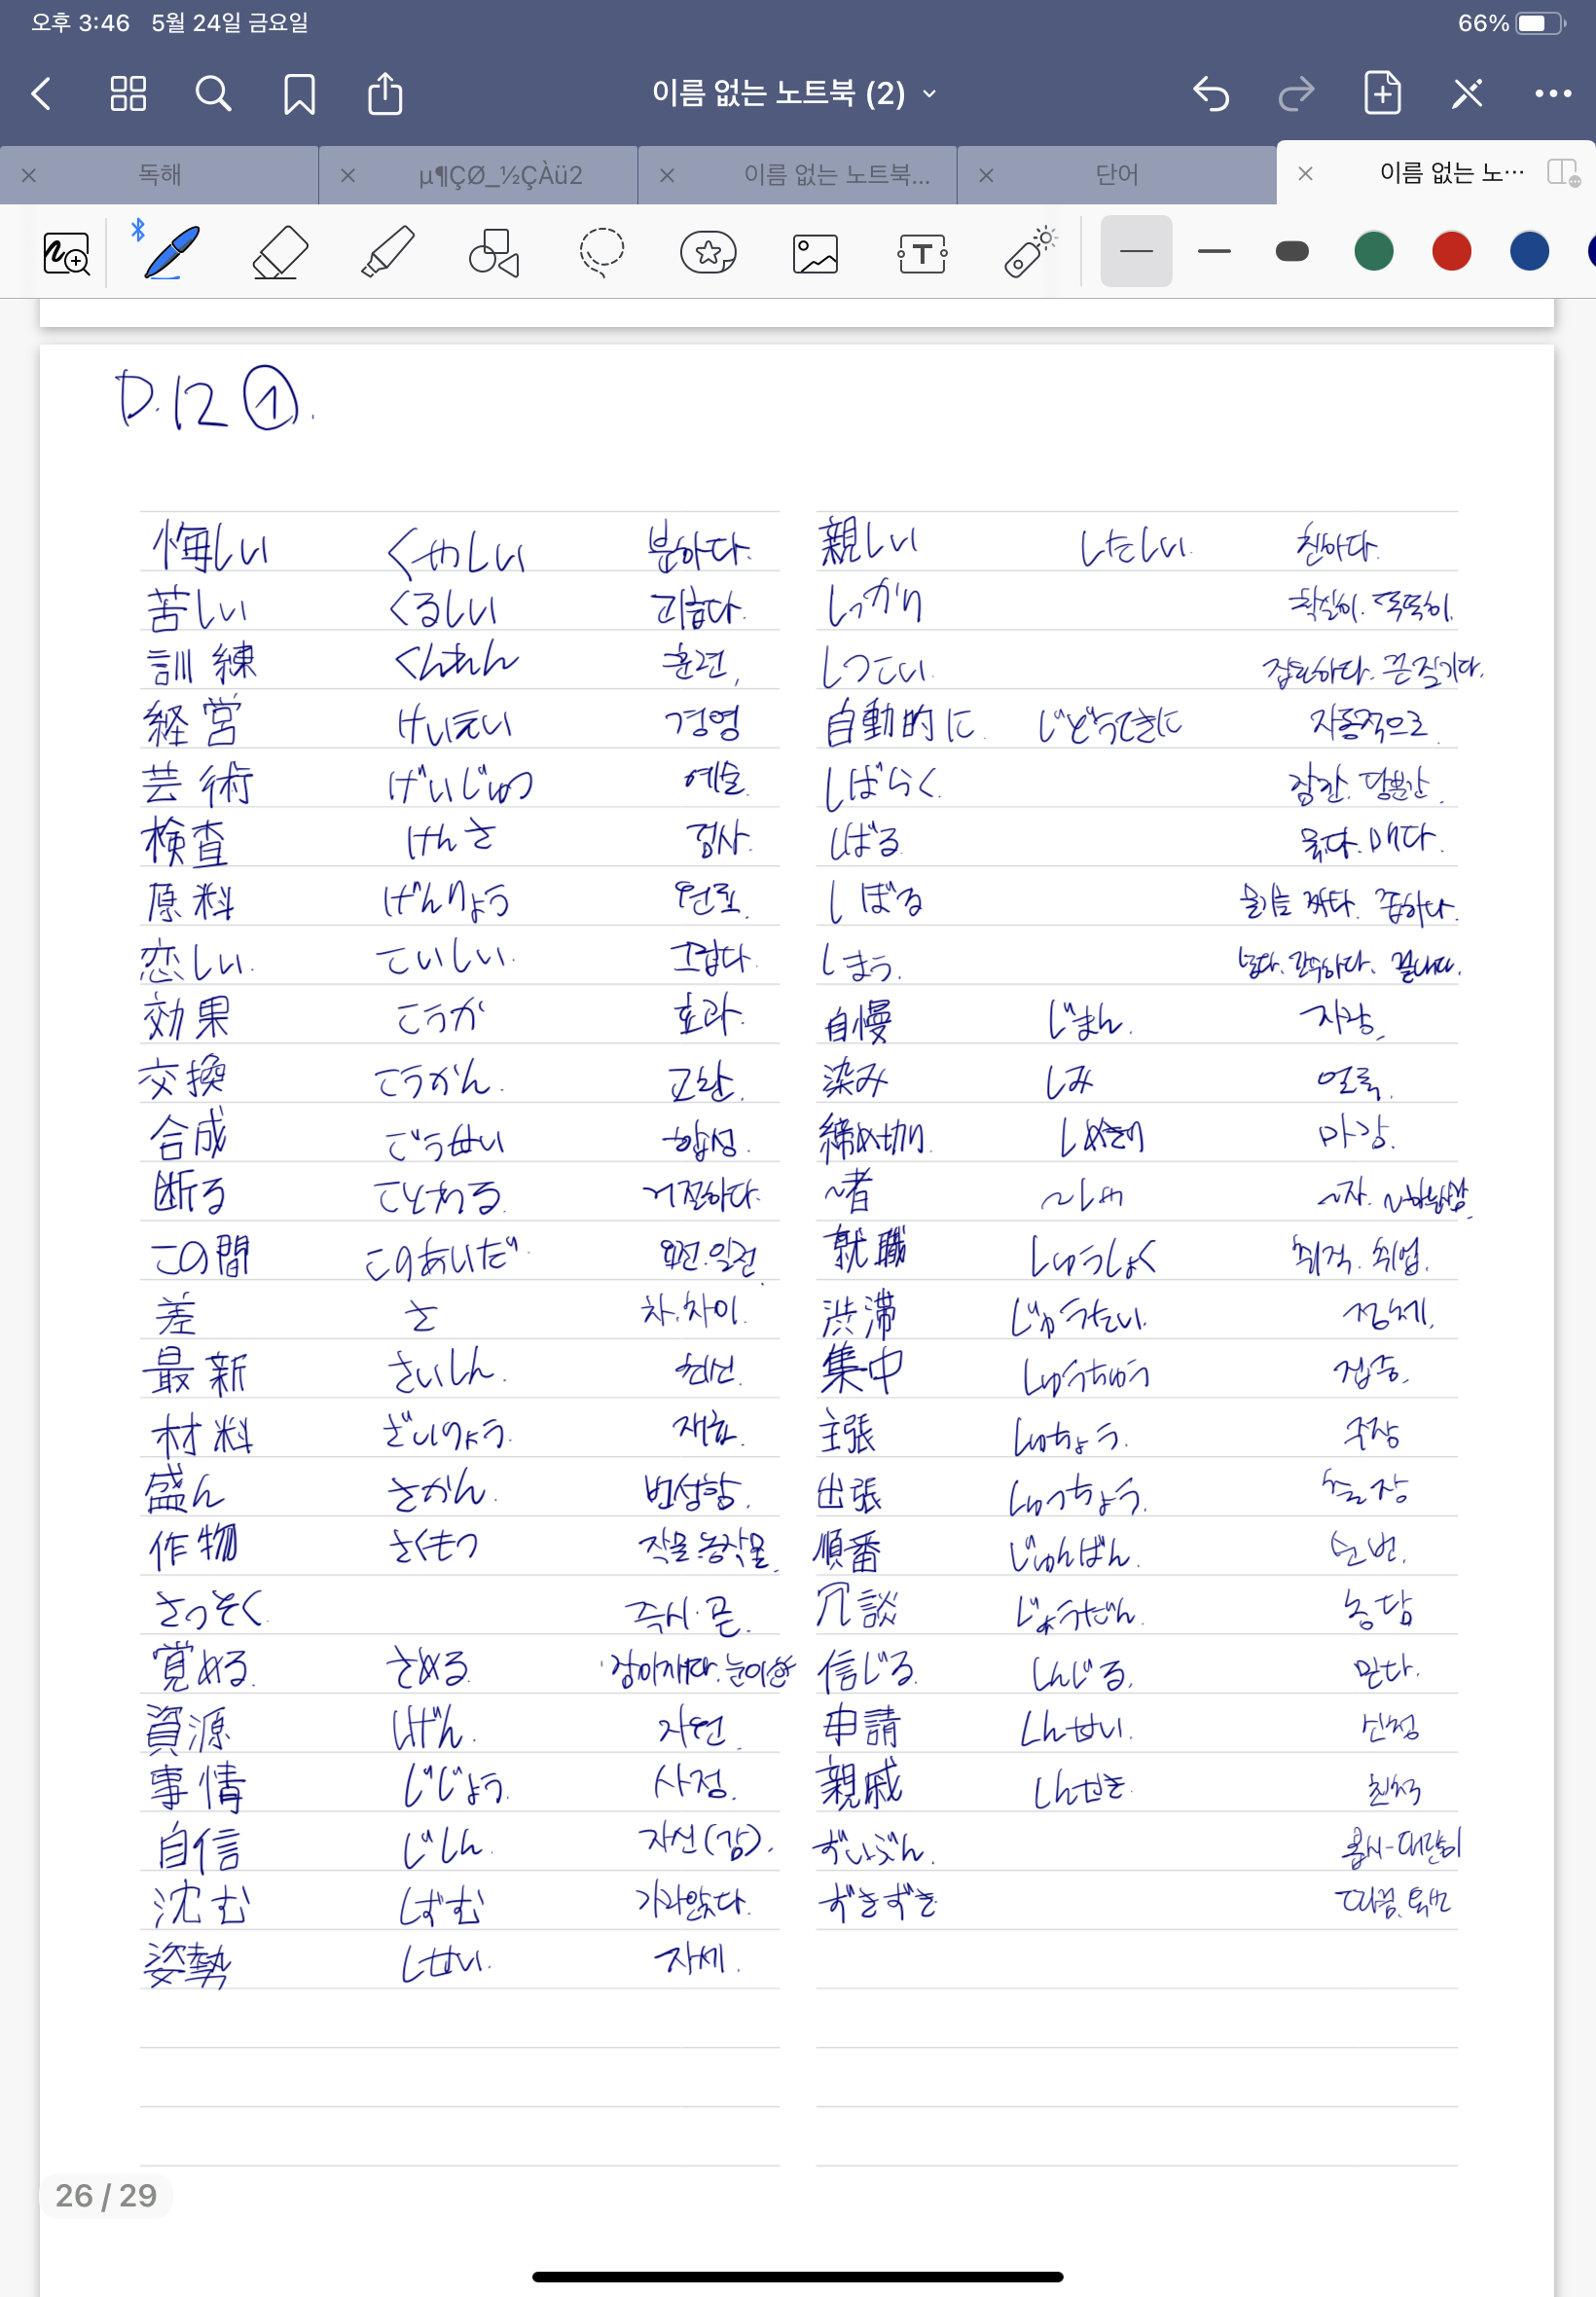 오후 3:46 5월 24일 금요일 66%
이름 없는 노트북 (2)
독해 µ¶ÇØ_½ÇÀü2 이름 없는 노트북... 단어 이름 없는 노···
D.12 ①.
悔しい くやしい 분하다.
苦しい くるしい 괴롭다.
訓練 くんれん 훈련,
経営 けいえい 경영
芸術 げいじゅつ 예술.
検査 けんさ 검사.
原料 げんりょう 원료.
恋しい. こいしい. 그립다.
効果 こうか 효과.
交換 こうかん. 교환.
合成 ごうせい 합성.
断る ことわる. 거절하다.
この間 このあいだ. 요전. 일전.
差 さ 차. 차이.
最新 さいしん. 최신.
材料 ざいりょう. 재료.
盛ん さかん. 번성함.
作物 さくもつ 작물. 농작물.
さっそく. 즉시. 곧.
覚める. さめる.
資源 しげん. 자원.
事情 じじょう. 사정.
自信 じしん. 자신(감).
沈む しずむ 가라앉다.
姿勢 しせい. 자세.
親しい したしい. 친하다.
しっかり 확실히. 똑똑히.
しつこい. 집요하다. 끈질기다.
自動的に. じどうてきに 자동적으로.
しばらく. 잠깐. 당분간.
しばる. 묶다. 매다.
しぼる 물기를 짜다. 좁히다.
しまう.
自慢 じまん. 자랑.
染み しみ 얼룩.
締め切り. しめきり 마감.
~者 ~しゃ ~자. ~하는 사람.
就職 しゅうしょく 취직. 취업.
渋滞 じゅうたい. 정체.
集中 しゅうちゅう 집중.
主張 しゅちょう. 주장
出張 しゅっちょう. 출장
順番 じゅんばん. 순번.
冗談 じょうだん. 농담
信じる. しんじる. 믿다.
申請 しんせい. 신청
親戚 しんせき. 친척
ずいぶん. 몹시-대단히
ずきずき
26 / 29